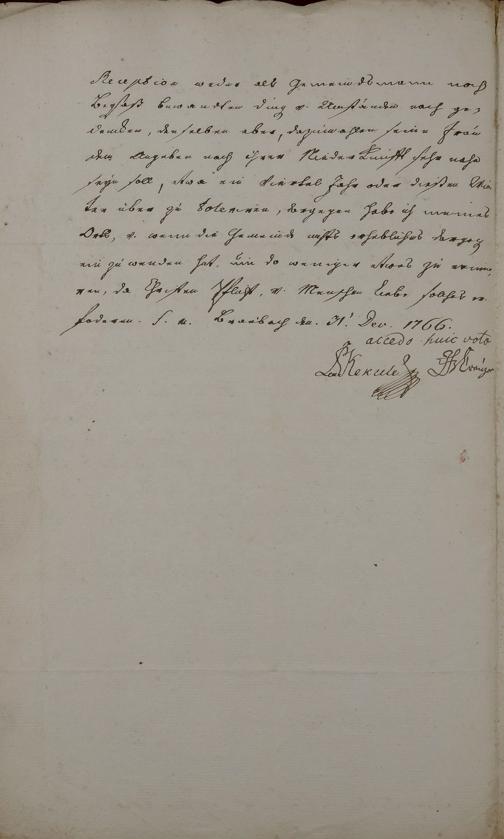 Reception weder als Gemeindsmann noch
Beysaß bewandten Ding u. Umständen nach ge-
denken, denselben aber, dazumahlen seine Frau
dem Angeben nach ihrer Niederkunfft sehr nahe
seyn soll, etwa ein Viertel Jahr oder diesen Win-
ter über zu toleriren, dargegen habe ich meines
Orts, u. wenn die Gemeinde nichts erhebliches dargeg.
einzuwenden hat. um so weniger etwas zu erinne-
ren, da Christen Pflicht, u. Menschen Liebe solches er-
foderen. S. m. Braubach den 31t. Dec. 1766.
accedo huic voto
Kekule